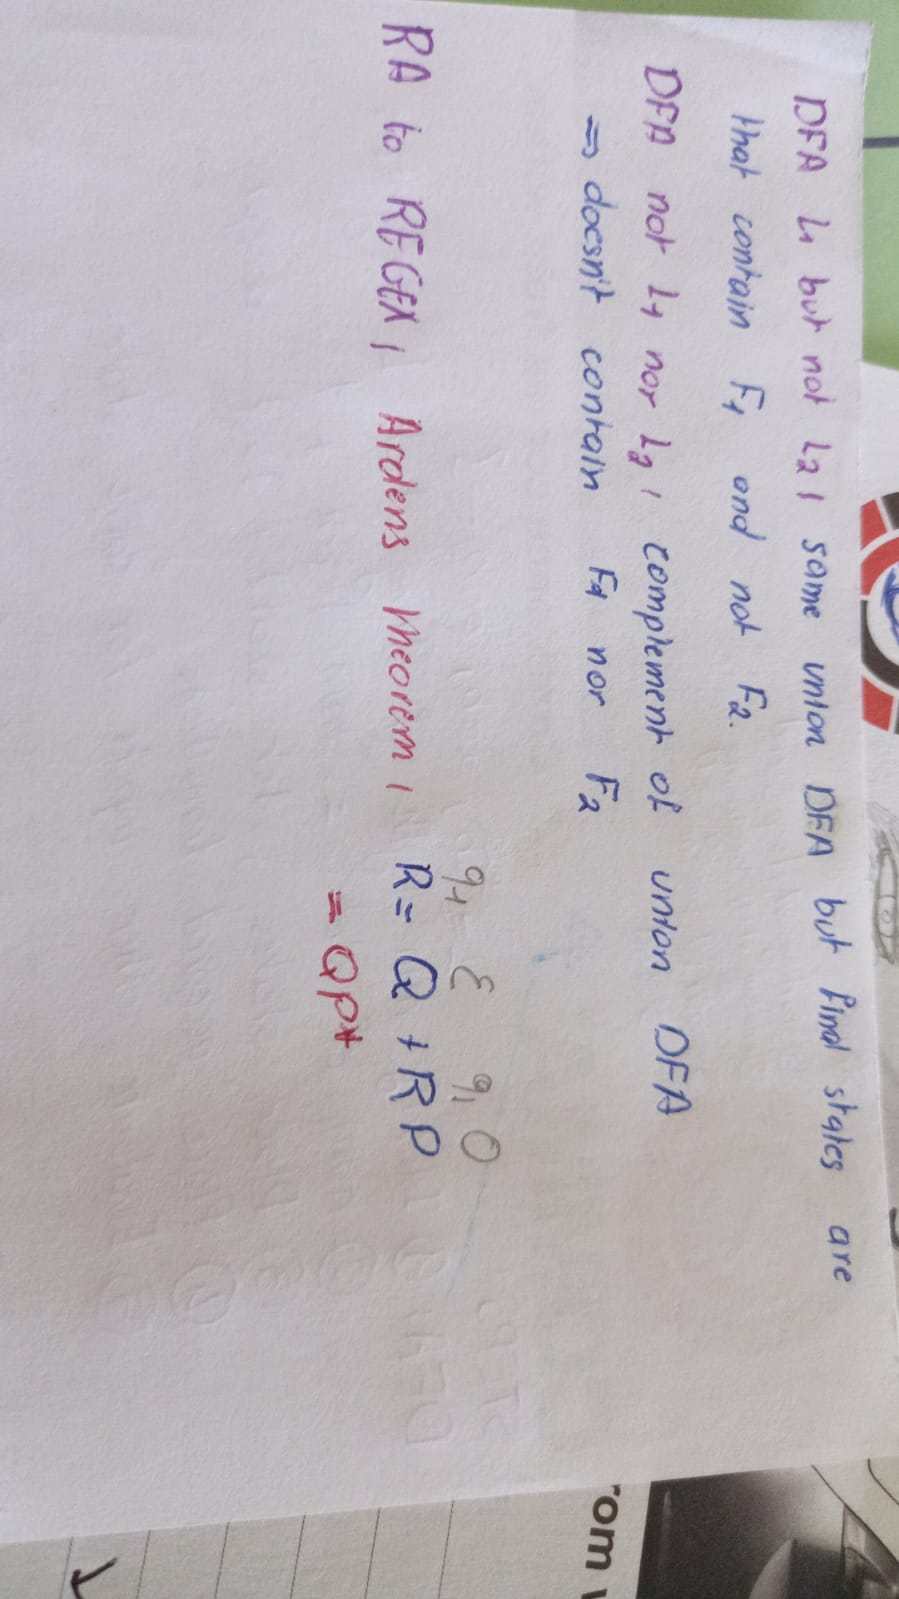 DFA L1 but not L2 ; same union DFA but final states are
that contain F1 and not F2.
DFA not L1 nor L2 ; complement of union DFA
⇒ doesn't contain F1 nor F2
q1 ε q1 0
RA to REGEX ; Ardens theorem ; R = Q + RP
= QP*
rom